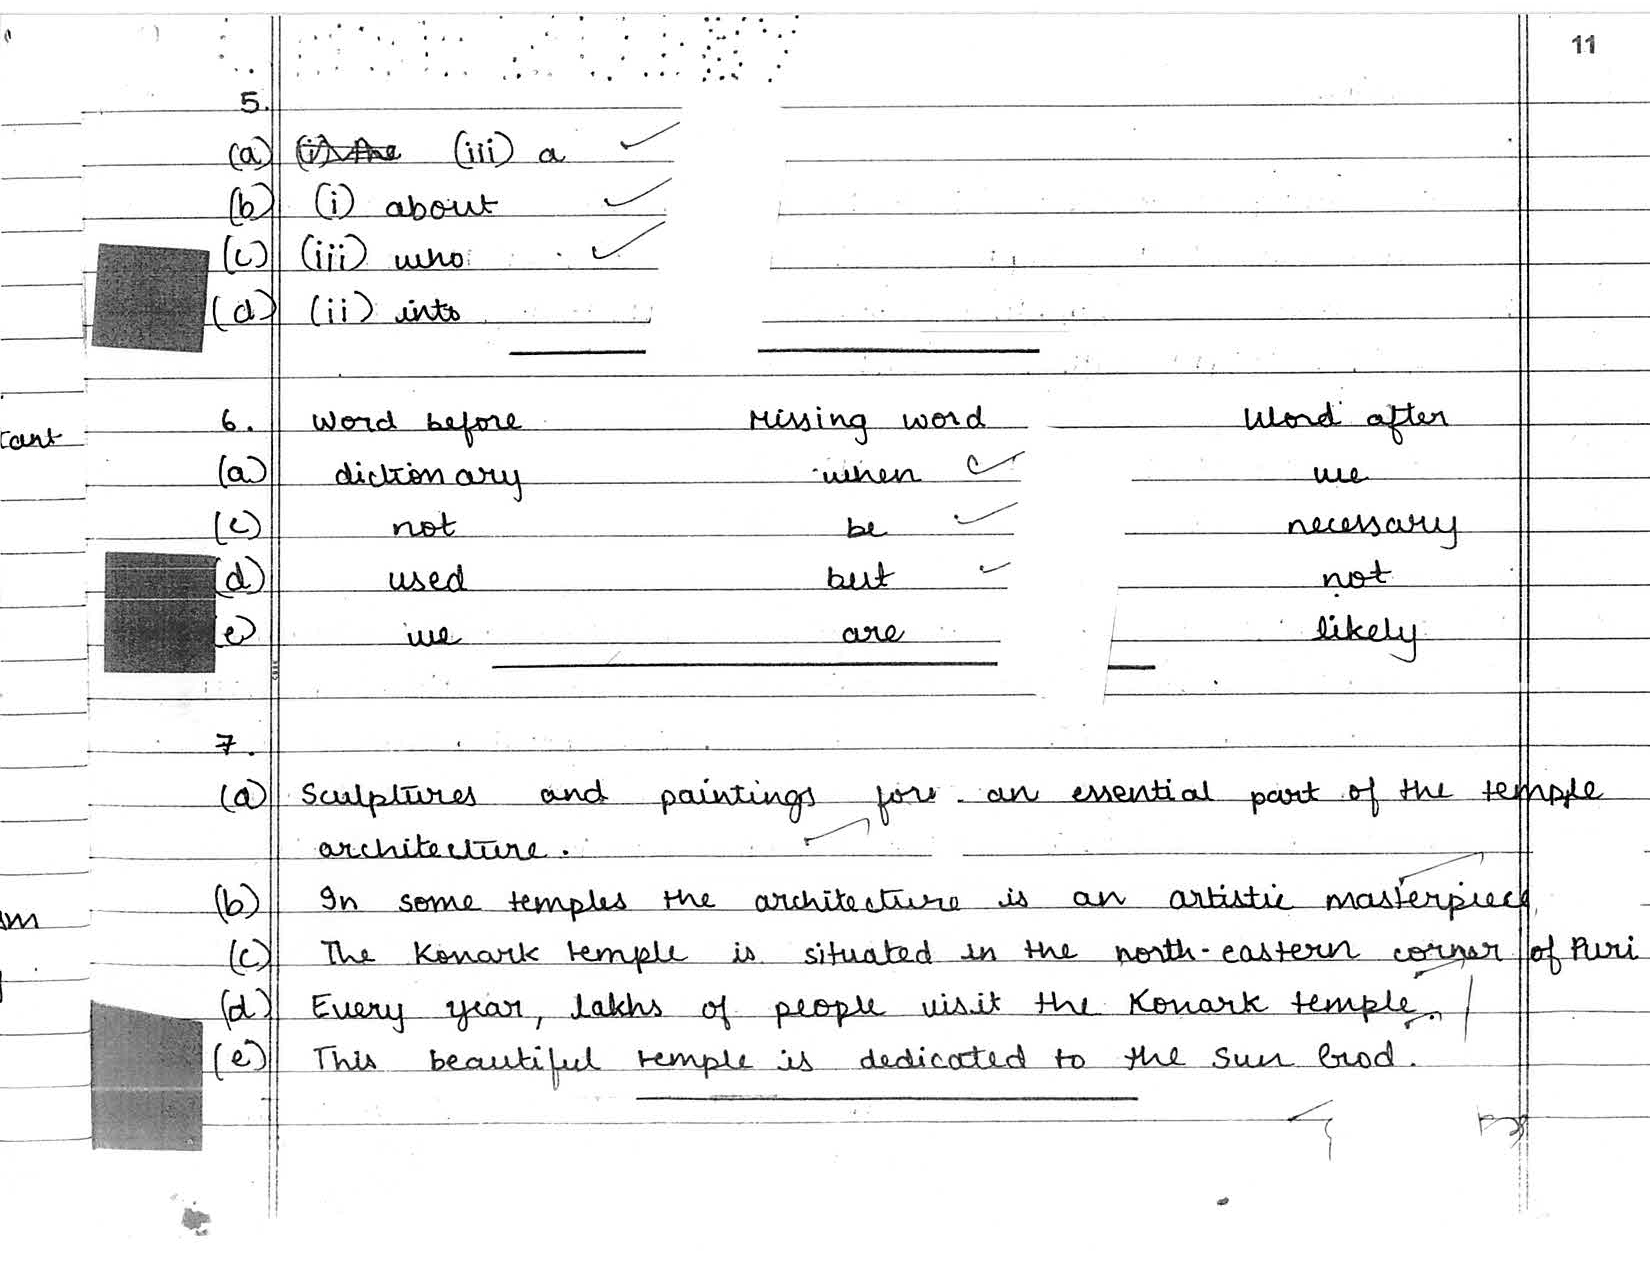 11
5.
(a) (i) the (iii) a
(b) (i) about
(c) (iii) who
(d) (ii) into
6. Word before Missing word Word after
(a) dictionary when we
(c) not be necessary
(d) used but not
(e) we are likely
7.
(a) Sculptures and paintings an essential part of the temple
architecture.
(b) In some temples the architecture is an artistic masterpiece
(c) The Konark temple is situated in the north-eastern corner of Puri
(d) Every year, lakhs of people visit the Konark temple.
(e) This beautiful temple is dedicated to the Sun God.